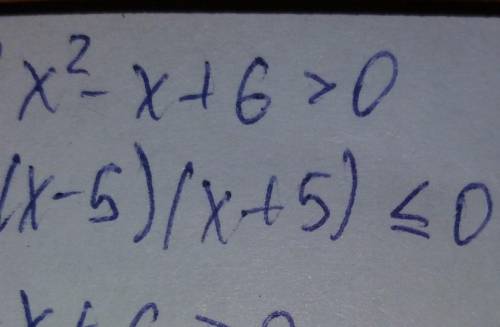 x² - x + 6 > 0
(x-5)(x+5) ≤ 0